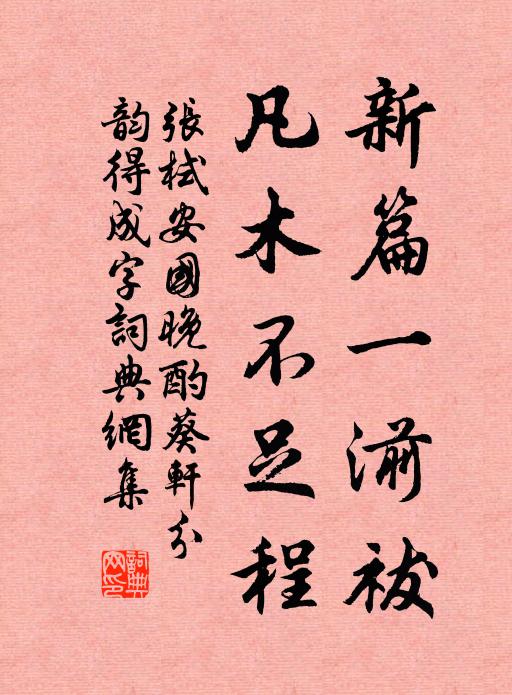 新篇一湔祓
凡木不足程
張栻安國晚酌葵軒分
韵得成字詞典網集
詞典網印